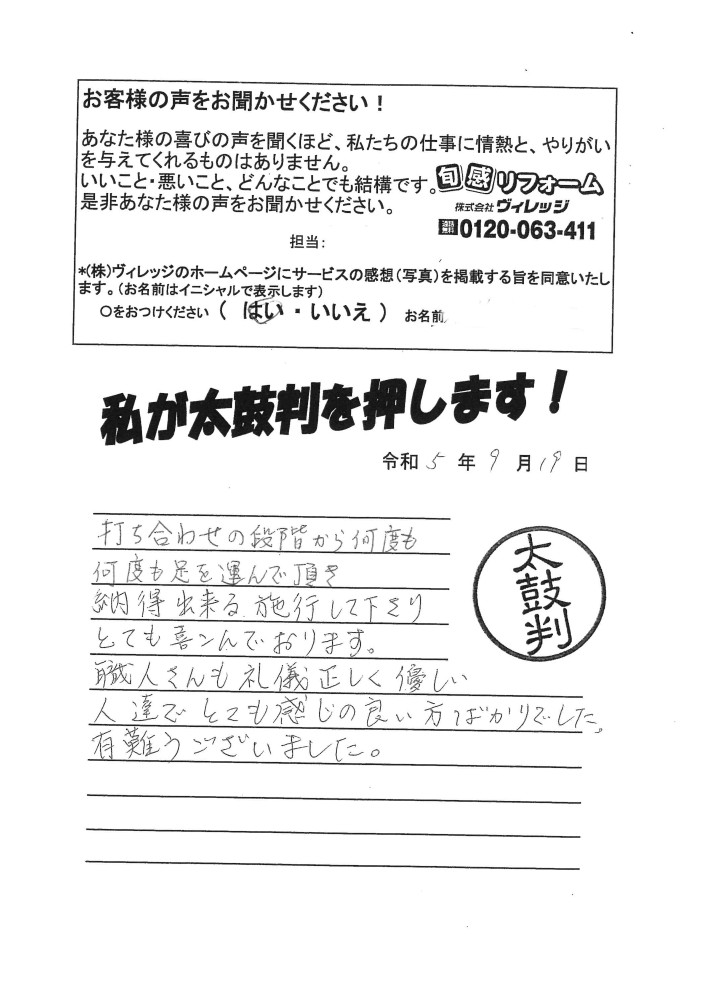 お客様の声をお聞かせください！
あなた様の喜びの声を聞くほど、私たちの仕事に情熱と、やりがい
を与えてくれるものはありません。
いいこと・悪いこと、どんなことでも結構です。
是非あなた様の声をお聞かせください。
旬感リフォーム
株式会社ヴィレッジ
通話無料 0120-063-411
担当：
*(株)ヴィレッジのホームページにサービスの感想(写真)を掲載する旨を同意いたし
ます。(お名前はイニシャルで表示します)
〇をおつけください （ はい ・ いいえ ） お名前
私が太鼓判を押します！
令和 5 年 9 月 19 日
打ち合わせの段階から何度も
何度も足を運んで頂き
納得出来る施行して下さり
とても喜こんでおります。
職人さんも礼儀正しく優しい
人達でとても感じの良い方ばかりでした。
有難うございました。
太鼓判